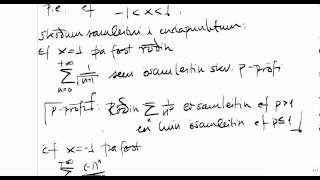 þ.e. ef -1 < x < 1.
skoðum samleitni í endapunktum:
Ef x=1 þá fæst röðin
\sum_{n=0}^{+\infty} \frac{1}{n+1} sem ósamleitin skv. p-prófi
p-próf: Röðin \sum_{n} \frac{1}{n^p} er samleitin ef p>1
en hún ósamleitin ef p≤1
Ef x=-1 þá fæst
+∞ \sum (-1)^n